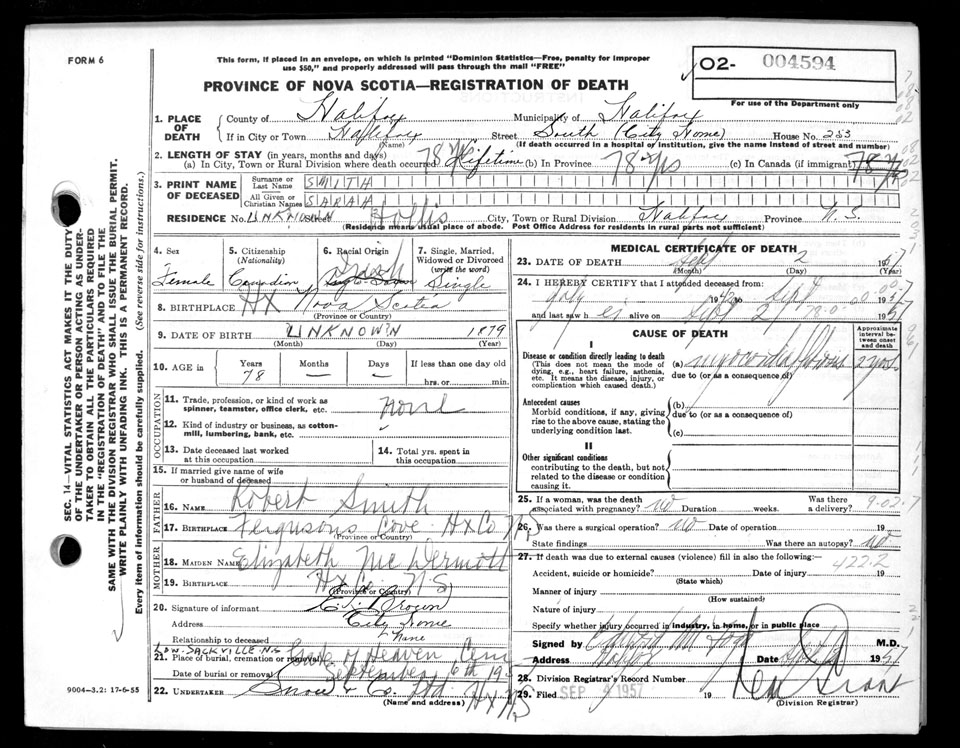 FORM 6
This form, if placed in an envelope, on which is printed "Dominion Statistics—Free, penalty for improper
use $50," and properly addressed will pass through the mail "FREE"
PROVINCE OF NOVA SCOTIA—REGISTRATION OF DEATH
O2- 004594
For use of the Department only
1. PLACE OF DEATH
County of Halifax Municipality of Halifax
If in City or Town Halifax (Name) Street South (City Home) House No. 253
(If death occurred in a hospital or institution, give the name instead of street and number)
2. LENGTH OF STAY (in years, months and days)
(a) In City, Town or Rural Division where death occurred 78 yrs Lifetime (b) In Province 78 yrs (c) In Canada (if immigrant) 78 yrs
3. PRINT NAME OF DECEASED
Surname or Last Name SMITH
All Given or Christian Names SARAH
RESIDENCE No. UNKNOWN Hollis City, Town or Rural Division Halifax Province N.S.
(Residence means usual place of abode. Post Office Address for residents in rural parts not sufficient)
4. Sex
Female
5. Citizenship
(Nationality)
Canadian
6. Racial Origin
Irish
7. Single, Married,
Widowed or Divorced
(write the word)
Single
8. BIRTHPLACE HX Nova Scotia
(Province or Country)
9. DATE OF BIRTH UNKNOWN 1879
(Month) (Day) (Year)
10. AGE in
Years Months Days If less than one day old
78 — — hrs. or min.
OCCUPATION
11. Trade, profession, or kind of work as
spinner, teamster, office clerk, etc. none
12. Kind of industry or business, as cotton-
mill, lumbering, bank, etc.
13. Date deceased last worked
at this occupation
14. Total yrs. spent in
this occupation
15. If married give name of wife
or husband of deceased
FATHER
16. NAME Robert Smith
17. BIRTHPLACE Fergusons Cove HxCo NS
(Province or Country)
MOTHER
18. MAIDEN NAME Elizabeth McDermott
19. BIRTHPLACE HX Co NS
(Province or Country)
20. Signature of informant Brown
Address City Home
Relationship to deceased None
LOW. SACKVILLE N.S
21. Place of burial, cremation or removal Gate of Heaven Cem
Date of burial or removal September 6th 195
22. UNDERTAKER Snow & Co Ltd HX NS
(Name and address)
MEDICAL CERTIFICATE OF DEATH
23. DATE OF DEATH Sept 2 1957
(Month) (Day) (Year)
24. I HEREBY CERTIFY that I attended deceased from:
July 19 to Sept 1957
and last saw her alive on Sept 2 1957
CAUSE OF DEATH
Approximate interval between onset and death
I
Disease or condition directly leading to death
(This does not mean the mode of dying, e.g., heart failure, asthenia, etc. It means the disease, injury, or complication which caused death.)
(a) 2 yrs
due to (or as a consequence of)
Antecedent causes
Morbid conditions, if any, giving rise to the above cause, stating the underlying condition last.
(b)
due to (or as a consequence of)
(c)
II
Other significant conditions
contributing to the death, but not related to the disease or condition causing it.
25. If a woman, was the death
associated with pregnancy? no Duration weeks. Was there a delivery?
9-02-7
26. Was there a surgical operation? no Date of operation 19
State findings Was there an autopsy? no
27. If death was due to external causes (violence) fill in also the following:—
422.2
Accident, suicide or homicide? Date of injury 19
(State which)
Manner of injury
(How sustained)
Nature of injury
Specify whether injury occurred in industry, in home, or in public place
Signed by M.D.
Address Halifax Date Sept 1957
28. Division Registrar's Record Number
29. Filed SEP 4 1957 19
Grant
(Division Registrar)
SEC. 14—VITAL STATISTICS ACT MAKES IT THE DUTY
OF THE UNDERTAKER OR PERSON ACTING AS UNDER-
TAKER TO OBTAIN ALL THE PARTICULARS REQUIRED
IN THE "REGISTRATION OF DEATH" AND TO FILE THE
SAME WITH THE DIVISION REGISTRAR WHO SHALL ISSUE THE BURIAL PERMIT.
WRITE PLAINLY WITH UNFADING INK. THIS IS A PERMANENT RECORD.
Every item of information should be carefully supplied. (See reverse side for instructions.)
9004-3.2: 17-6-55